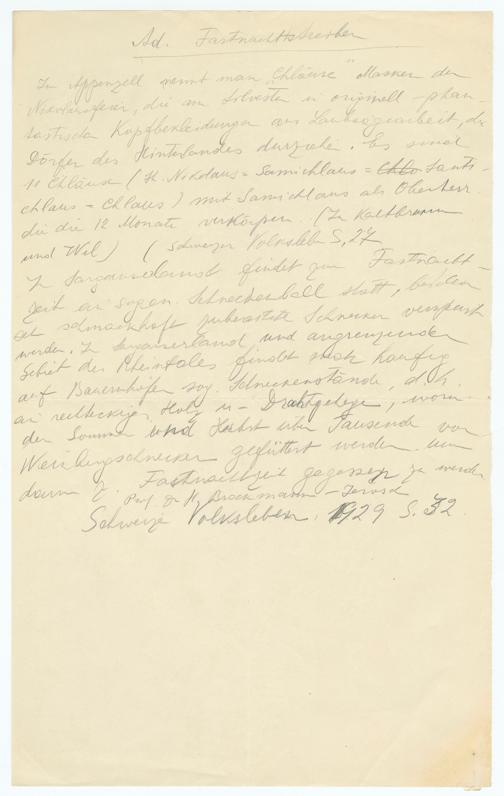 Ad. Fastnachtstreiben
In Appenzell nennt man "Chläuse" Masken der
Nikolausfeier, die am Silvester in originell-phan-
tastischen Kopfbekleidungen aus Laubsägearbeit, die
Dörfer des Hinterlandes durziehn. Es sind
11 Chläuse (St. Nikolaus = Samichlaus = Santi-
chlaus = Chlaus) mit Samichlaus als Oberherr
die die 12 Monate verkörpern. (In Kaltbrunn
und Wil) (Schweizer Volksleben S. 27
In Sarganserland findet zur Fastnacht-
zeit ein sogen. Schneckenball statt, bei dem
schmackhaft zubereitete Schnecken verspeist
werden. In Sarganserland und angrenzenden
Gebiet des Rheintales findet man häufig
auf Bauernhöfen sog. Schneckenstände, d.h.
ein rechteckiges Holz u- Drahtgehege, worin
den Sommer und Herbst über Tausende von
Weinbergschnecken gefüttert werden um
dann z. Fastnachtzeit gegessen zu werden
Prof. Dr H. Brockmann-Jerosch
Schweizer Volksleben. 1929 S. 32.